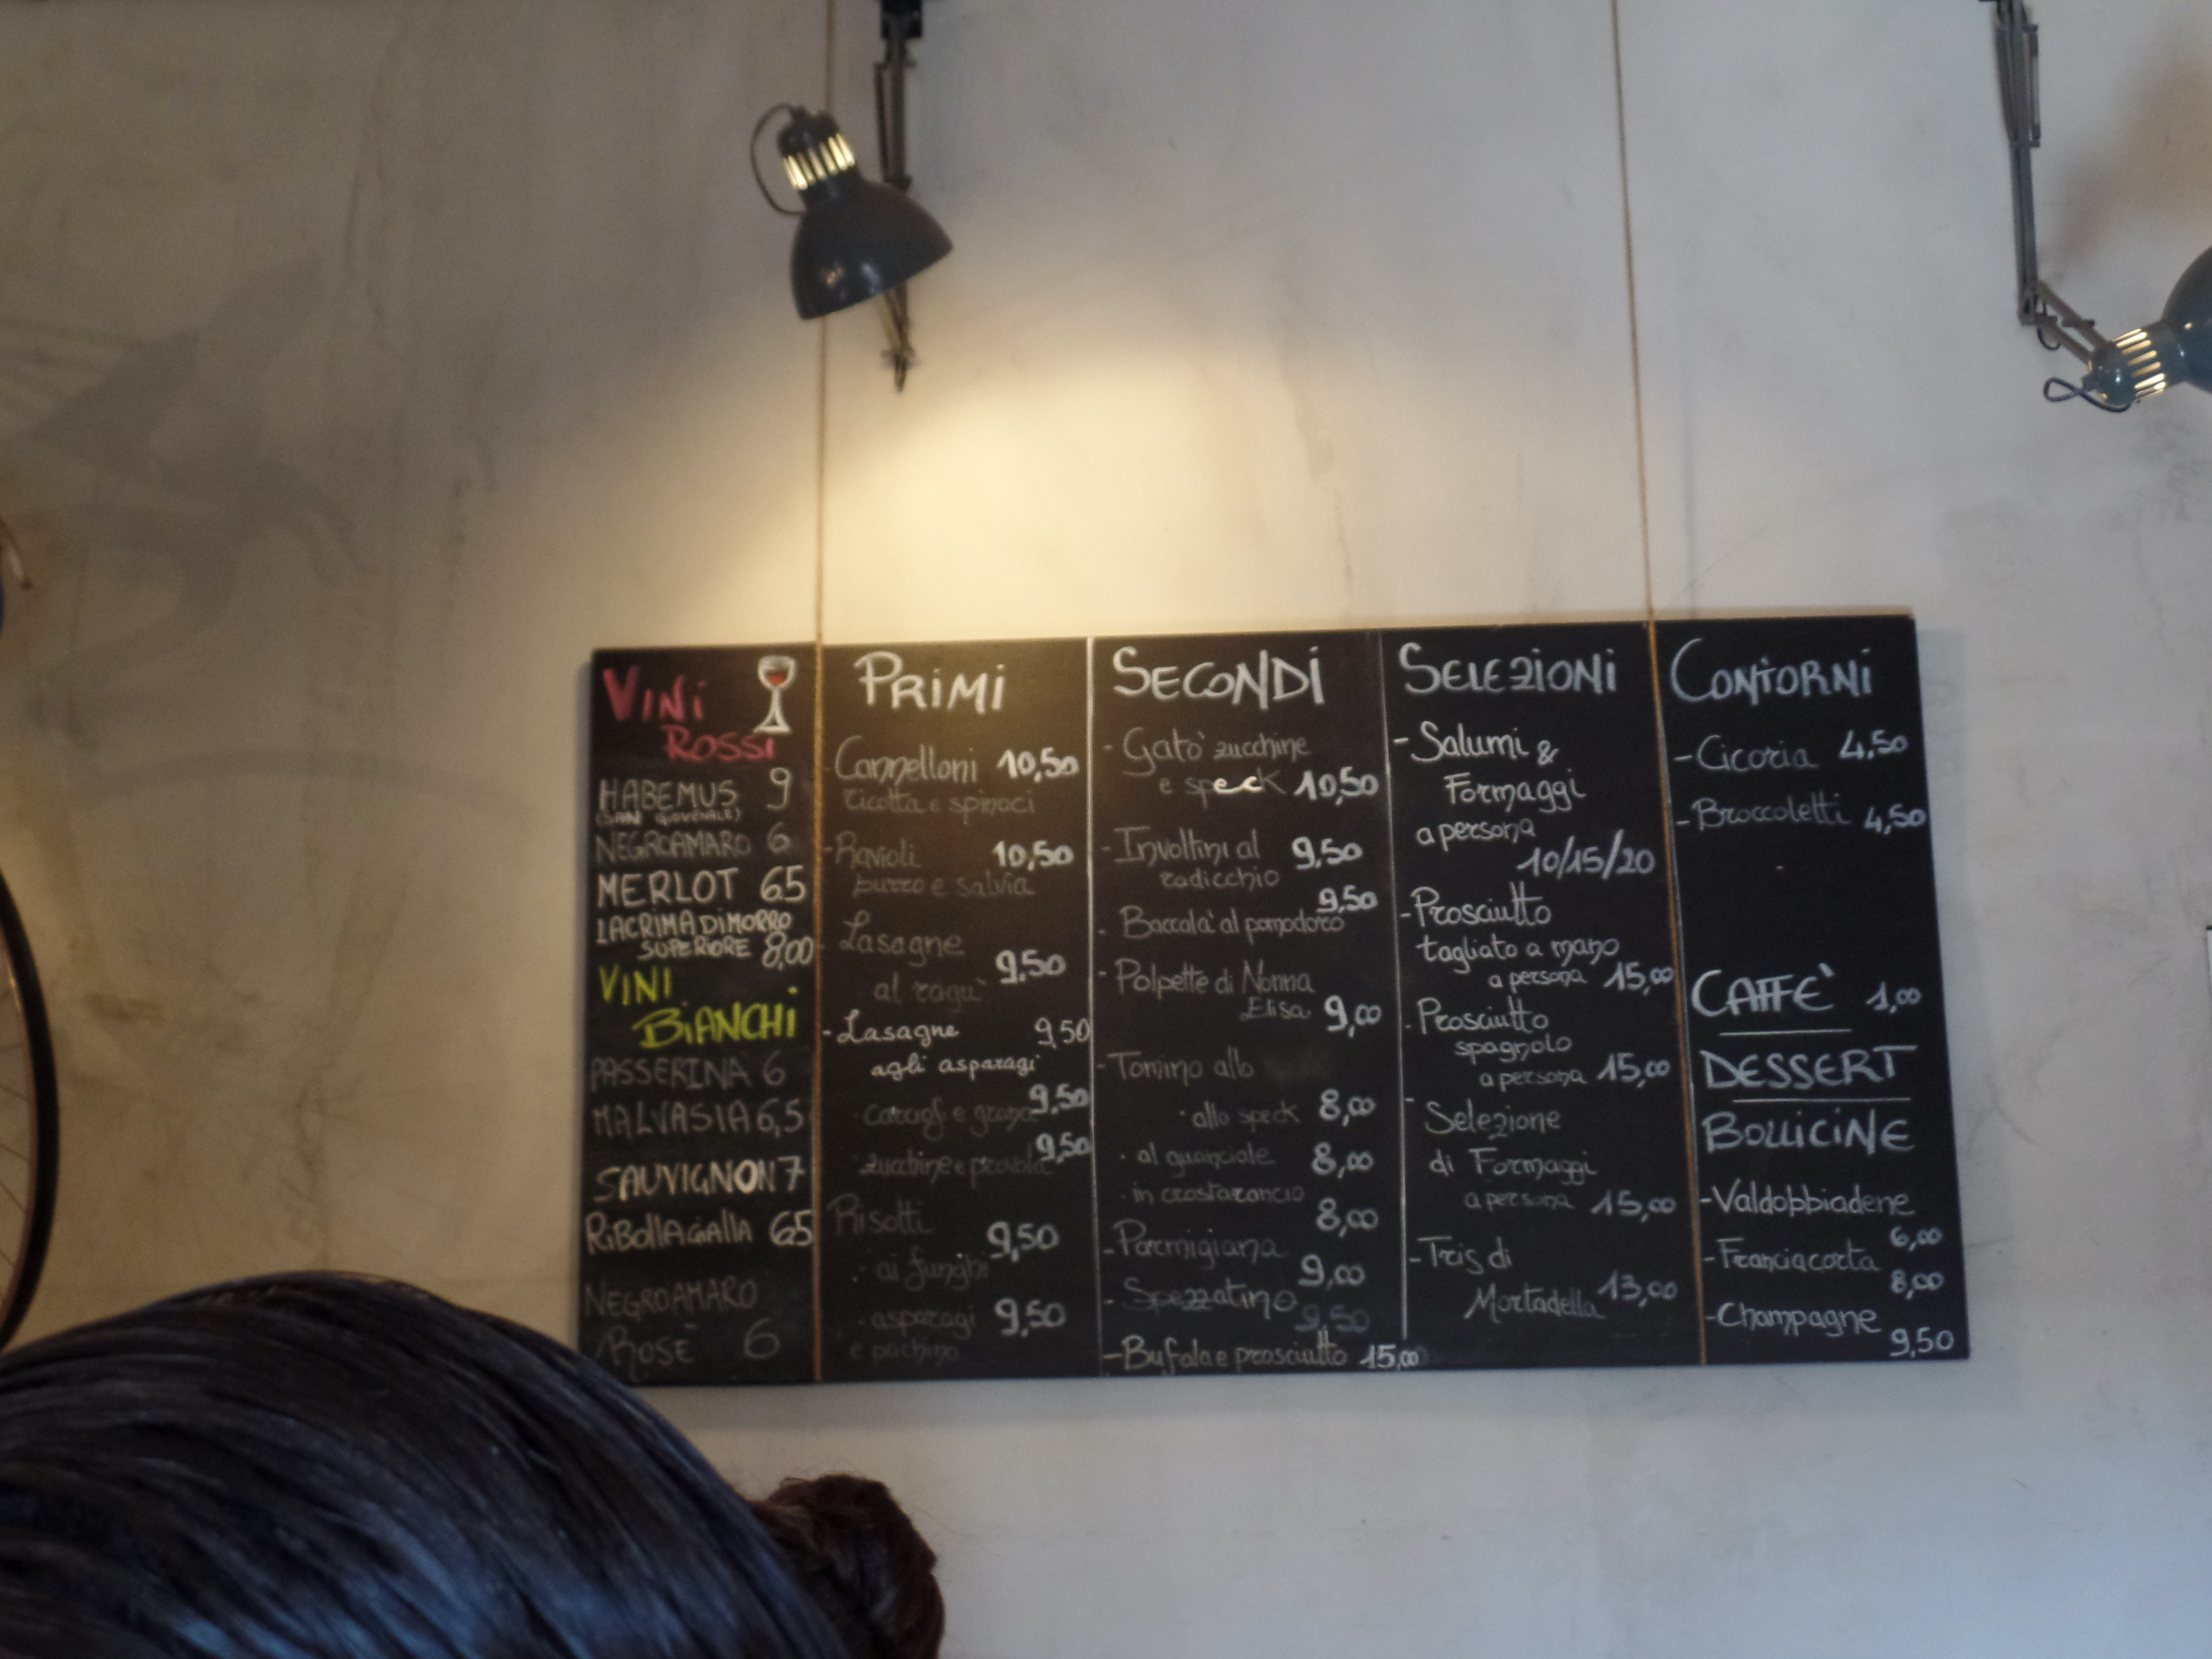 VINI
ROSSI
HABEMUS 9
(SAN GIOVENALE)
NEGROAMARO 6
MERLOT 65
LACRIMA DI MORRO
SUPERIORE 8,00
VINI
BIANCHI
PASSERINA 6
MALVASIA 6,5
SAUVIGNON 7
RIBOLLA GIALLA 65
NEGROAMARO
ROSÈ 6
PRIMI
- Cannelloni 10,50
ricotta e spinaci
- Ravioli 10,50
burro e salvia
- Lasagne
al ragu' 9,50
- Lasagne 9,50
agli asparagi
· carciofi e grana 9,50
· zucchine e provola 9,50
Risotti
· ai funghi 9,50
· asparagi 9,50
e pachino
SECONDI
- Gato' zucchine
e speck 10,50
- Involtini al 9,50
radicchio
- Baccala' al pomodoro 9,50
- Polpette di Nonna
Elisa 9,00
- Tomino allo
· allo speck 8,00
· al guanciale 8,00
· in crosta rancio 8,00
- Parmigiana 9,00
- Spezzatino 9,50
- Bufala e prosciutto 15,00
SELEZIONI
- Salumi &
Formaggi
a persona
10/15/20
- Prosciutto
tagliato a mano
a persona 15,00
- Prosciutto
spagnolo
a persona 15,00
- Selezione
di Formaggi
a persona 15,00
- Tris di
Mortadella 13,00
CONTORNI
- Cicoria 4,50
- Broccoletti 4,50
CAFFE' 1,00
DESSERT
BOLLICINE
- Valdobbiadene
6,00
- Franciacorta
8,00
- Champagne
9,50